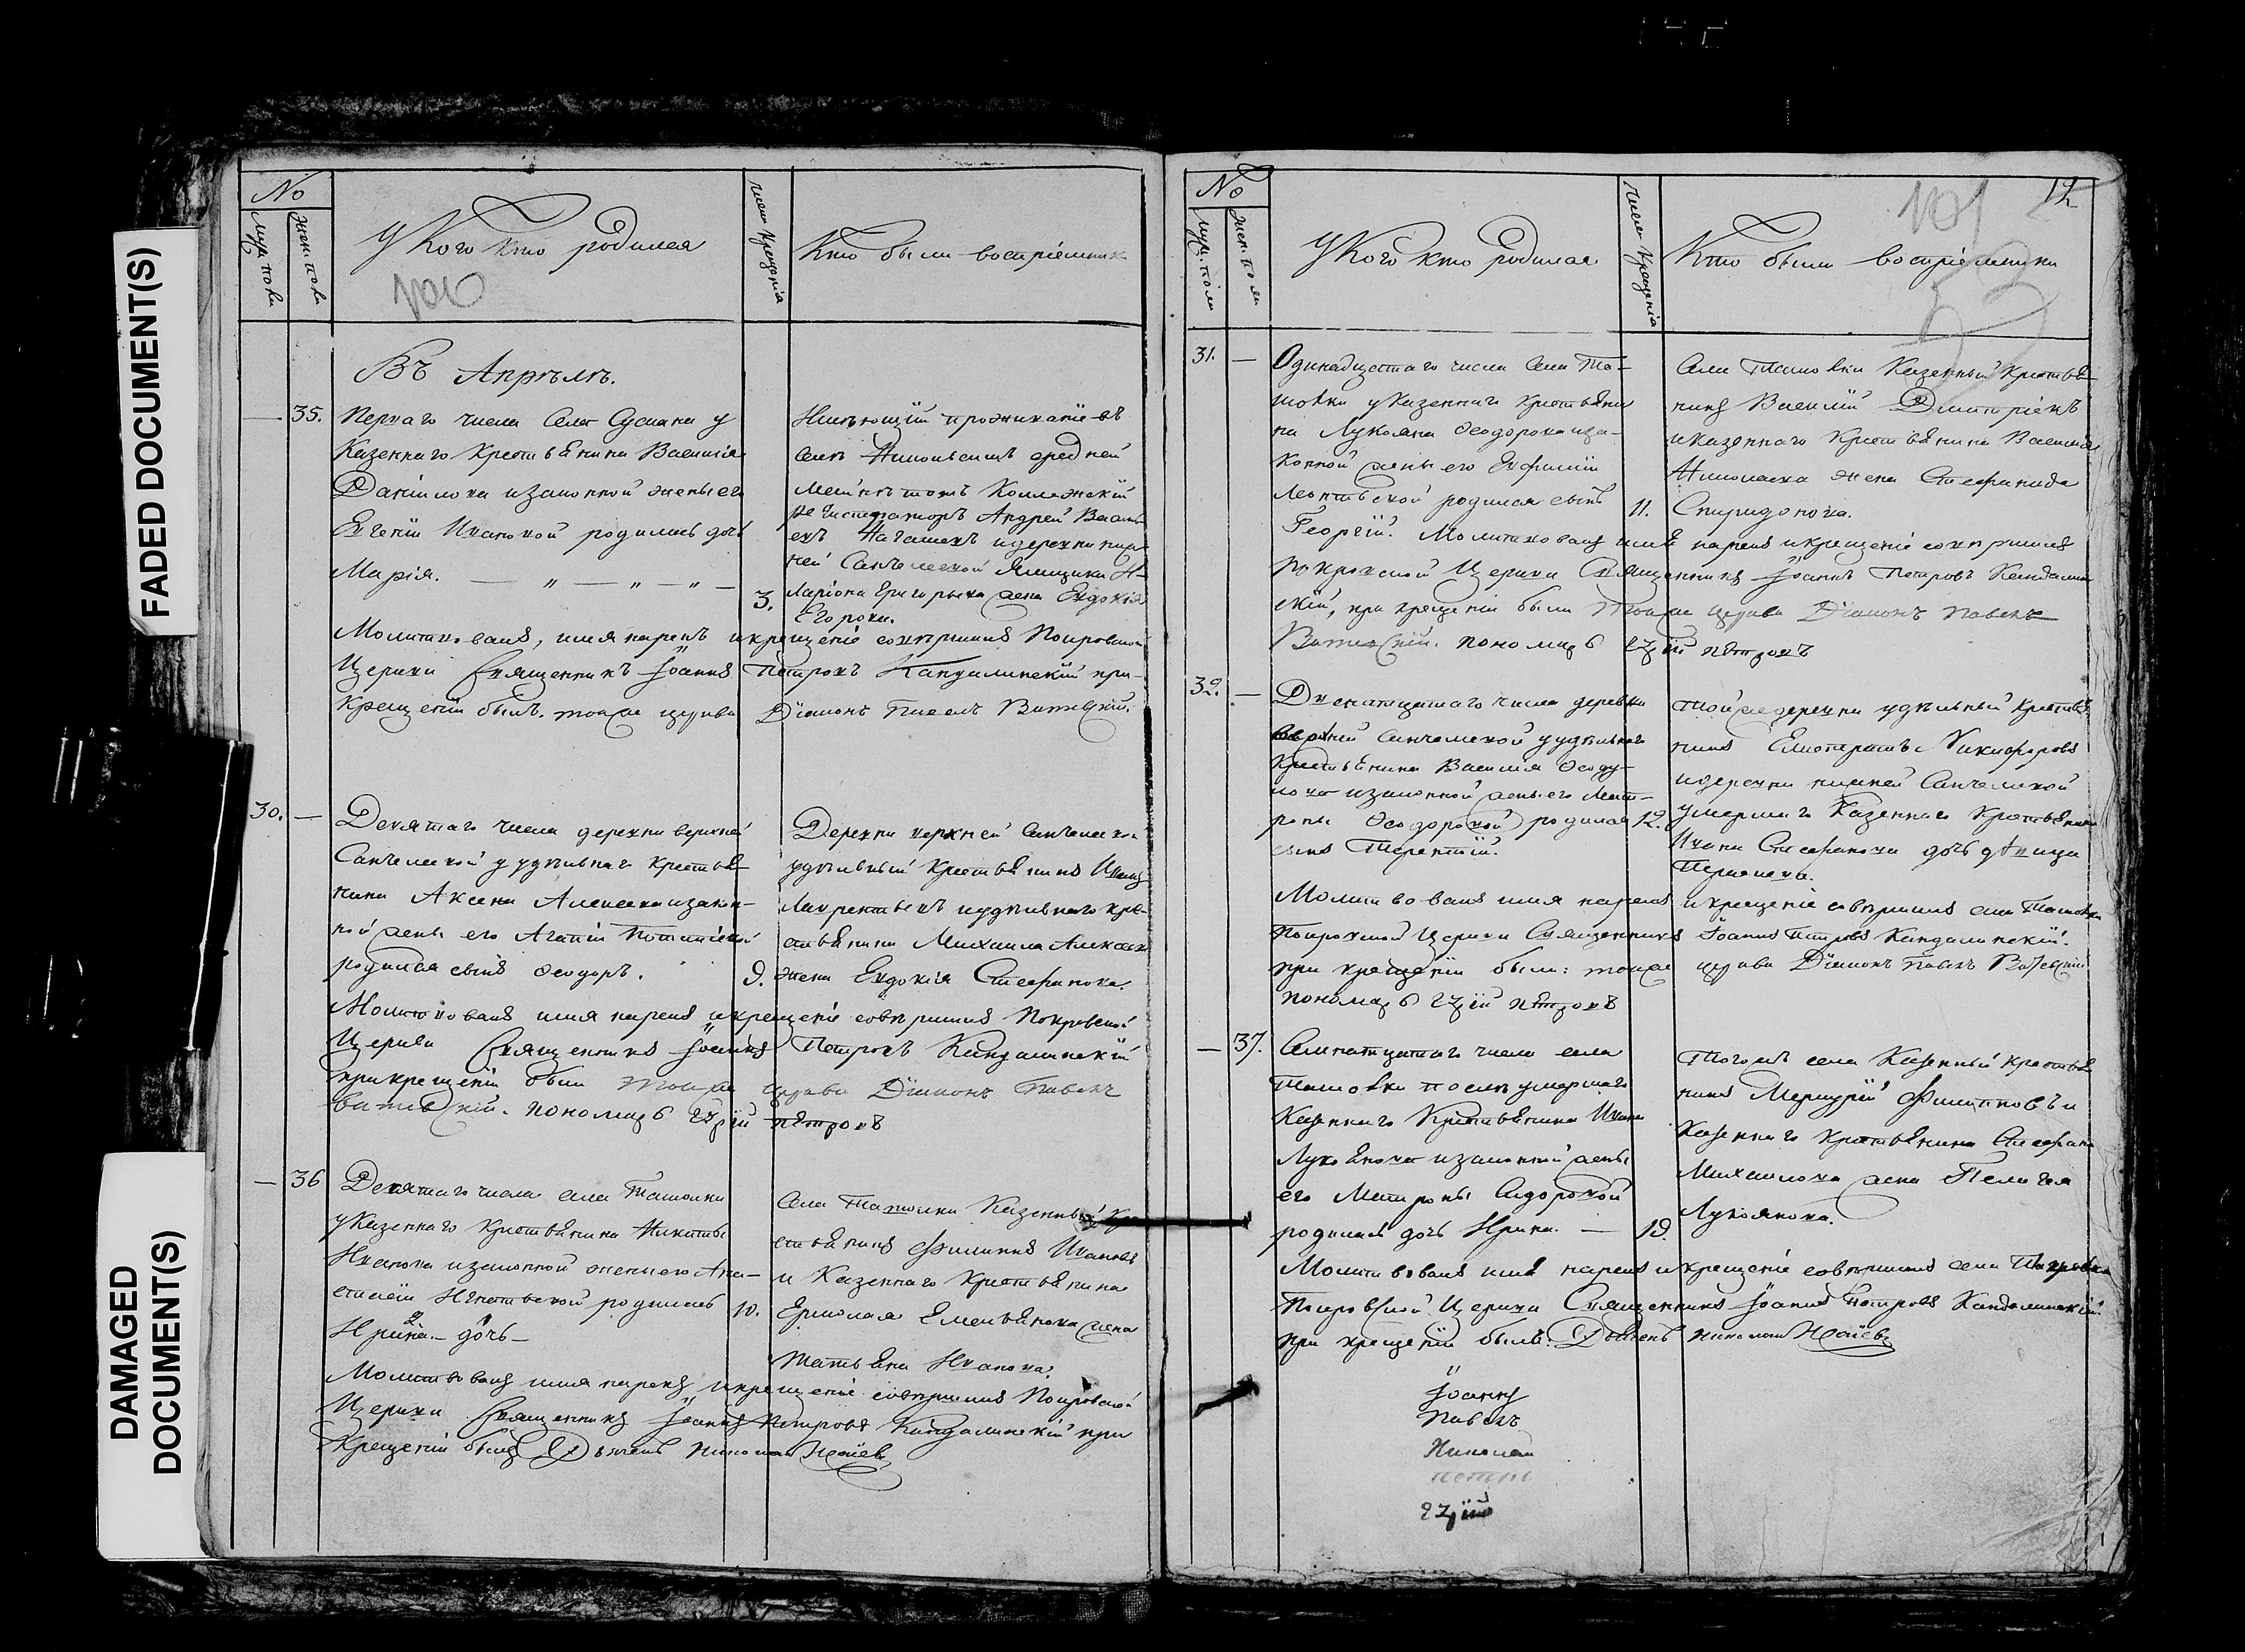 FADED DOCUMENT(S)
DAMAGED
DOCUMENT(S)
№
Муж. пола
Жен. пола
У Кого кто родился
100
Число Крещенія
Кто были воспріемник
Въ Апрѣлѣ.
35.
Перваго числа Села у
Казеннаго Крестьянина Василія
Даніилова изаконной жены его
Евгеніи Ивановой родилась дочь
Марія. — " — " — " —
3.
Имѣющій проживаніе въ
селѣ средней
Коллежскій
Регистраторъ Андрей Василь
евъ и деревни ниж
ней Санчелеевой Ямщика И-
ларіона Григорьева жена Евдокія
Егорова.
Молитвовалъ, имя нарекъ и крещеніе совершилъ Покровской
Церкви Священникъ Іоаннъ Петровъ Кандалинскій при
Крещеніи былъ. тояже церкви Діаконъ Павелъ
30. —
Девятаго числа деревни верхней
Санчелеевой у удѣльнаго крестья
нина Алексѣева изакон-
ной жены его Агапіи
родился сынъ Ѳеодоръ.
9.
Деревни верхней Санчелеевой
удѣльный Крестьянинъ Иванъ
Лаврентьевъ и удѣльнаго кре-
стьянина Михаила Алексѣева
жена Евдокія Стефанова.
Молитвовалъ имя нарекъ и крещеніе совершилъ Покровской
Церкви Священникъ Іоаннъ Петровъ Кандалинскій
при крещеніи были тояже церкви Діаконъ Павелъ
пономарь Юрій Петровъ
— 36
Девятаго числа села Ташолки
у Казеннаго Крестьянина Никиты
Иванова изаконной жены его Ана-
стасіи Игнатьевой родилась
Ирина — дочь —
10.
Села Ташолки Казенный Кре
стьянинъ Филиппъ Ивановъ
и Казеннаго Крестьянина
Ермолая Емельянова жена
Татьяна Иванова.
Молитвовалъ имя нарекъ и крещеніе совершилъ Покровской
Церкви Священникъ Іоаннъ Петровъ Кандалинскій при
Крещеніи былъ Дьячекъ Николай Исаевъ
№
Муж. пола
Жен. пола
У Кого кто родился
Число Крещенія
Кто были воспріемники
101
12
31. —
Одинадцатаго числа Села Та-
шолки у Казеннаго Крестьяни
на Лукояна Ѳеодорова иза-
конной жены его Евфиміи
Леонтьевой родился сынъ
Георгій.
11.
Села Ташолки Казенный Крестья-
нинъ Василій Димитріевъ
и казеннаго Крестьянина Василія
жена Стефанида
Спиридонова.
Молитвовалъ имя нарекъ и крещеніе совершилъ
Покровской Церкви Священникъ Іоаннъ Петровъ Кандалин
скій, при крещеніи были тояже церкви Діаконъ Павелъ
пономарь Юрій Петровъ
32. —
Двенатцатаго числа деревни
верхней Санчелеевой у удѣльнаго
Крестьянина Василія Ѳеоду-
лова изаконной жены его Мат-
роны Ѳеодоровой родился
сынъ Терентій.
12.
Той же деревни удѣльный Крестья
нинъ Никифоровъ
и деревни нижней Санчелеевой
умершаго Казеннаго Крестьянина
Ивана Стефанова дочь дѣвица
Молитвовалъ имя нарекъ и крещеніе совершилъ села Ташолки
Покровской Церкви Священникъ Іоаннъ Петровъ Кандалинскій.
при крещеніи были: тояже церкви Діаконъ Павелъ
пономарь Юрій Петровъ
— 37.
Семнатцатаго числа села
Ташолки послѣ умершаго
Казеннаго Крестьянина Ивана
Лукоянова изаконной жены
его Матроны Сидоровой
родилась дочь Ирина. —
19.
Тогожъ села Казенный крестья
нинъ Меркурій Филиповъ и
Казеннаго крестьянина Стефана
Михайлова жена Пелагея
Лукоянова.
Молитвовалъ имя нарекъ и крещеніе совершилъ села
Покровской Церкви Священникъ Іоаннъ Петровъ Кандалинскій.
при крещеніи былъ: Дьячекъ Николай Исаевъ
Іоаннъ
Павелъ
Николай
Петръ
Юрій